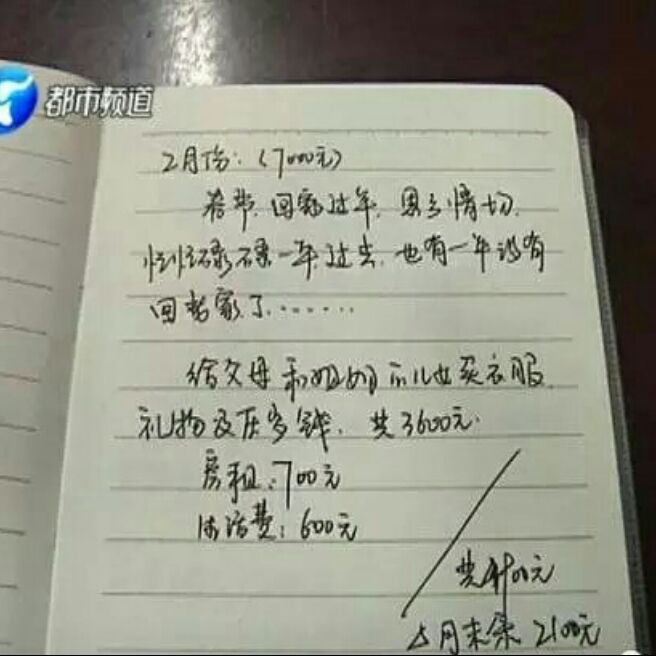 都市频道
2月份:(7000元)
春节,回家过年,思乡情切,
忙忙碌碌一年过去,也有一年没有
回老家了……
给父母和姐姐的儿女买衣服,
礼物及压岁钱,共3600元.
房租:700元
生活费:600元
共4900元
月末余2100元